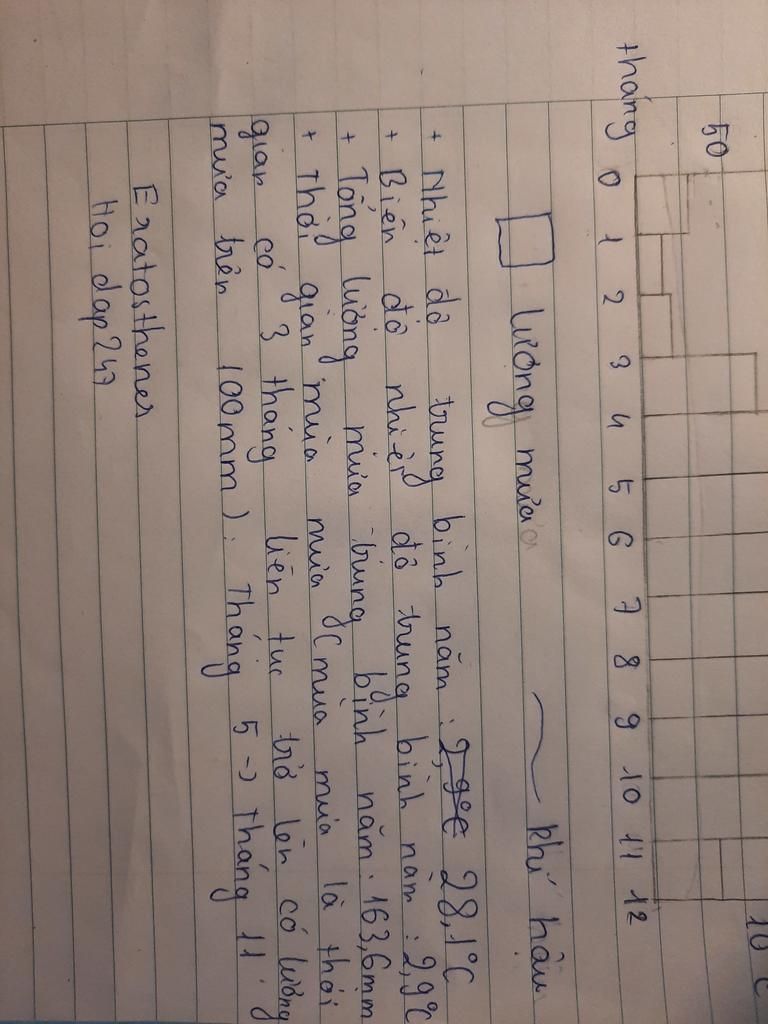 50
10 C
tháng 0 1 2 3 4 5 6 7 8 9 10 11 12
lương mưa khí hậu
+ Nhiêt dô trung bình năm : 2,9°C 28,1°C
+ Biên đô nhiêt đô trung bình năm : 2,9°C
+ Tổng lương mưa trung bình năm : 163,6mm
+ Thời gian mùa mưa (mùa mưa là thời
gian có 3 tháng liên tuc trở lên có lương
mưa trên 100mm) : Tháng 5 -> tháng 11.
Eratosthenes
Hoi dap247